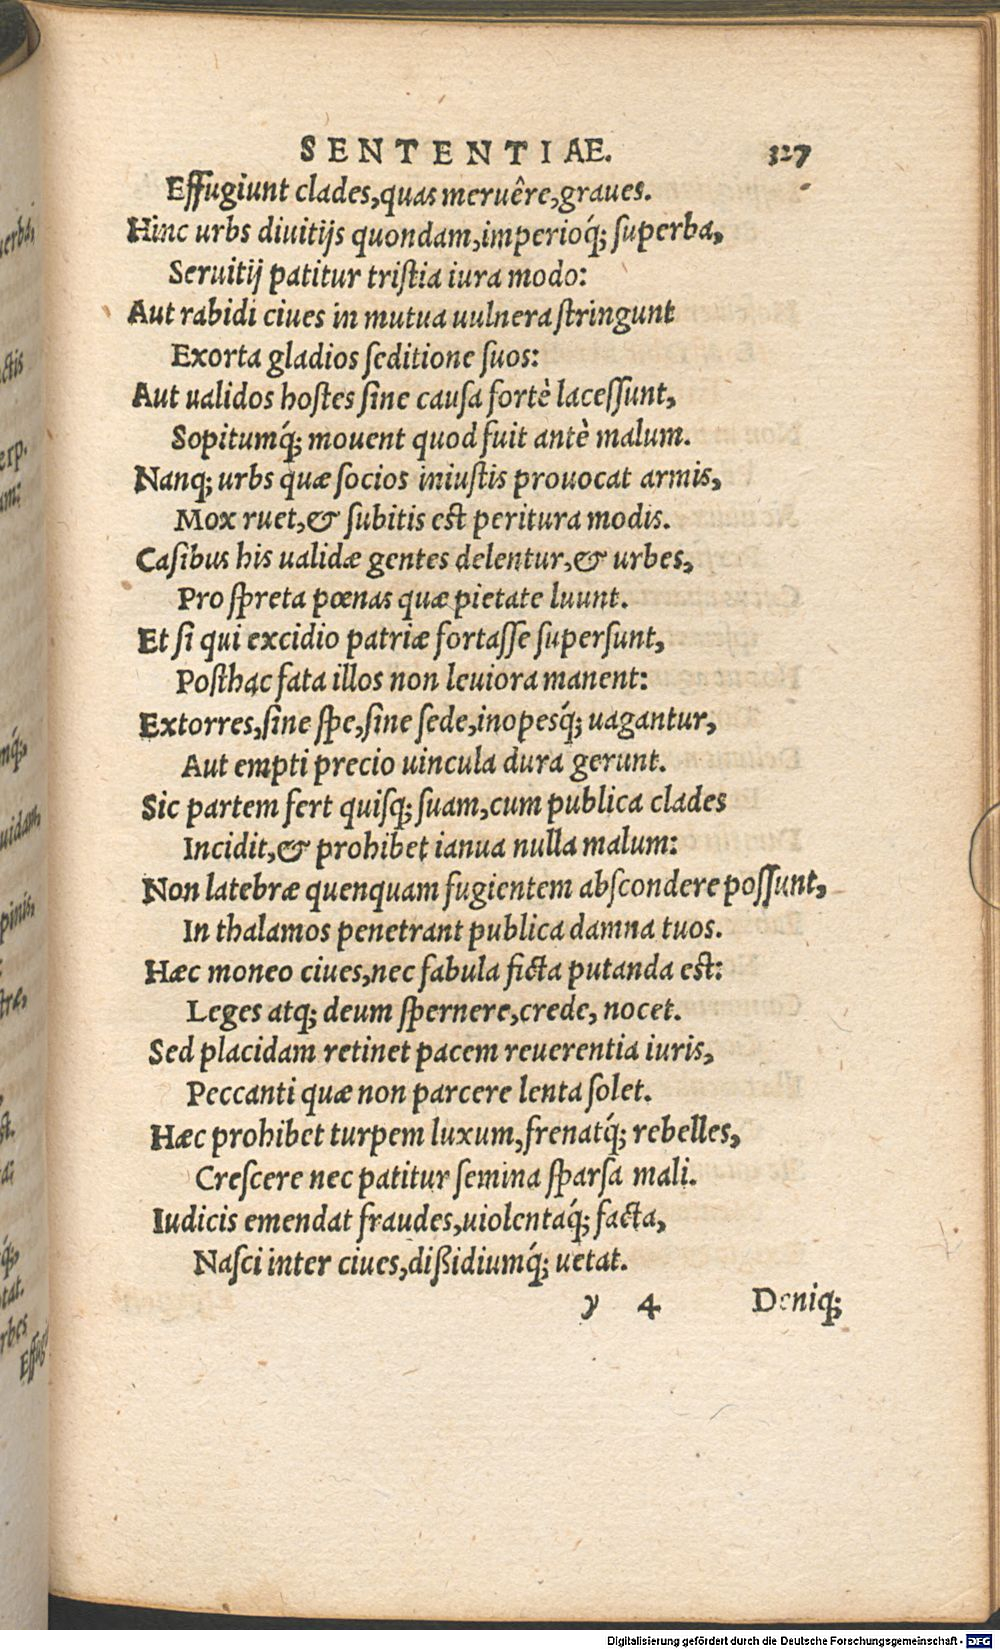 SENTENTIAE. 327
Effugiunt clades, quas meruêre, graues.
Hinc urbs diuitijs quondam, imperioq́; superba,
Seruitij patitur tristia iura modo:
Aut rabidi ciues in mutua uulnera stringunt
Exorta gladios seditione suos:
Aut ualidos hostes sine causa fortè lacessunt,
Sopitumq́; mouent quod fuit antè malum.
Nanq; urbs quæ socios iniustis prouocat armis,
Mox ruet, & subitis est peritura modis.
Casibus his ualidæ gentes delentur, & urbes,
Pro spreta pœnas quæ pietate luunt.
Et si qui excidio patriæ fortasse supersunt,
Posthac fata illos non leuiora manent:
Extorres, sine spe, sine sede, inopesq́; uagantur,
Aut empti precio uincula dura gerunt.
Sic partem fert quisq; suam, cum publica clades
Incidit, & prohibet ianua nulla malum:
Non latebræ quenquam fugientem abscondere possunt,
In thalamos penetrant publica damna tuos.
Hæc moneo ciues, nec fabula ficta putanda est:
Leges atq; deum spernere, crede, nocet.
Sed placidam retinet pacem reuerentia iuris,
Peccanti quæ non parcere lenta solet.
Hæc prohibet turpem luxum, frenatq́; rebelles,
Crescere nec patitur semina sparsa mali.
Iudicis emendat fraudes, uiolentaq́; facta,
Nasci inter ciues, dißidiumq́; uetat.
y 4 Deniq;
Digitalisierung gefördert durch die Deutsche Forschungsgemeinschaft - DFG